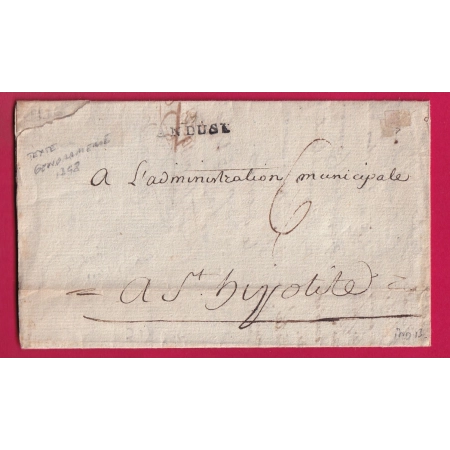 ANDUSE
TEXTE
GENDARMERIE
1358
A L'administration municipale
6
= A St. hippolite =